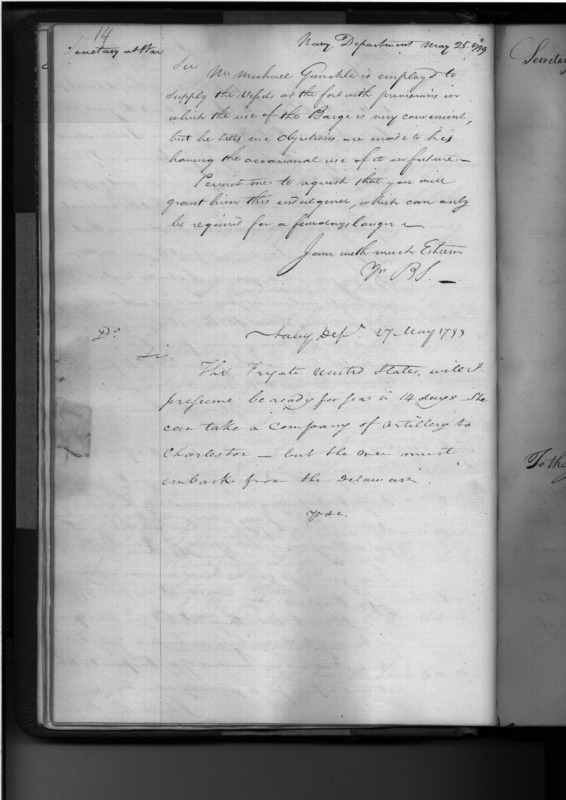 14
Secretary at War
Navy Department May 25th 1799
Sir
Mr Michael Gunckle is employed to
supply the Vessels at the fort with provisions in
which the use of the Barge is very convenient,
but he tells me objections are made to his
having the occasional use of it in future —
Permit me to request that you will
grant him this indulgence, which can only
be required for a few days longer —
I am with much Esteem
Yr BS. —
Do
Navy Dept. 27 May 1799
Sir,
The Frigate United States, will I
presume be ready for sea in 14 days. She
can take a Company of Artillery to
Charleston — but the men must
embark from the Delaware.
&c.
Secretary
To the